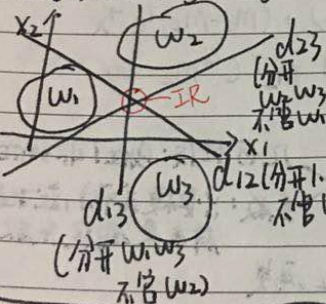 x₂
w₂
d₂₃
(分开
w₂ w₃
不管w₁
w₁
IR
x₁
w₃
d₁₂(分开1.
不管
d₁₃
(分开w₁w₃
不管w₂)